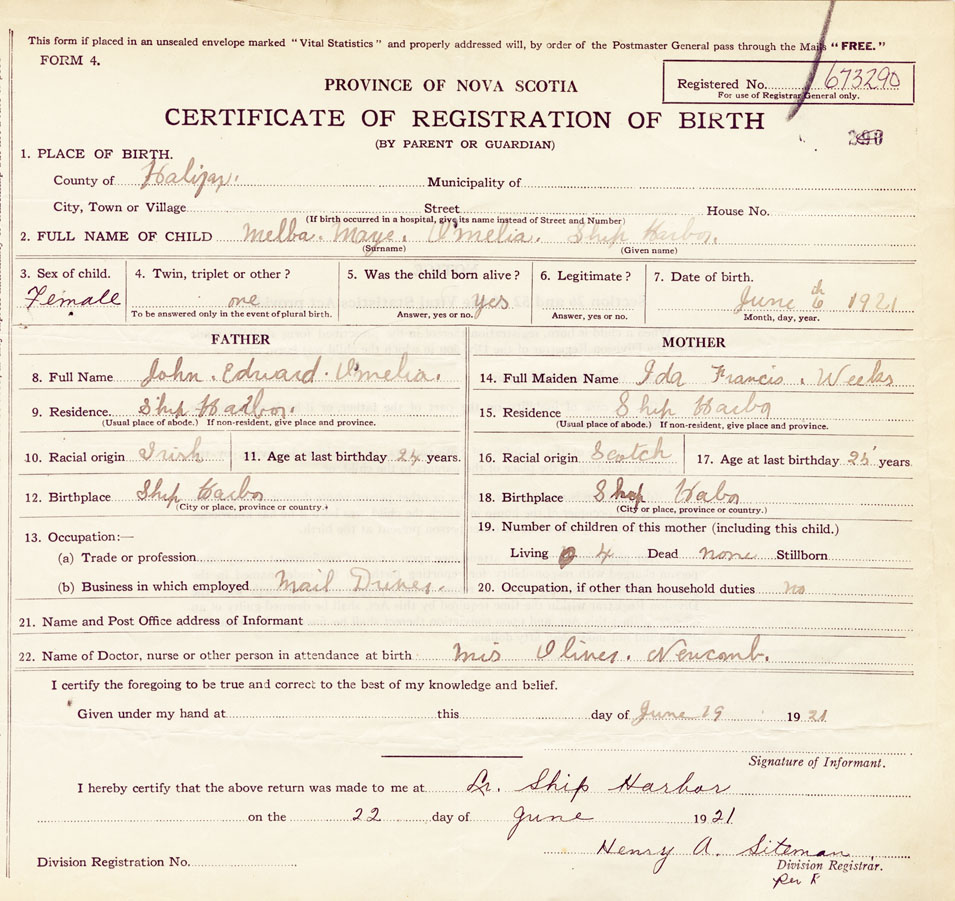 This form if placed in an unsealed envelope marked "Vital Statistics" and properly addressed will, by order of the Postmaster General pass through the Mails "FREE."
FORM 4.
PROVINCE OF NOVA SCOTIA
Registered No. 673290
For use of Registrar General only.
CERTIFICATE OF REGISTRATION OF BIRTH
(BY PARENT OR GUARDIAN)
1. PLACE OF BIRTH.
County of Halifax. Municipality of
City, Town or Village Street House No.
(If birth occurred in a hospital, give its name instead of Street and Number)
2. FULL NAME OF CHILD Melba. Maye. O'melia. Ship Harbor.
(Surname) (Given name)
3. Sex of child. 4. Twin, triplet or other? 5. Was the child born alive? 6. Legitimate? 7. Date of birth.
Female one yes June 6th 1921
To be answered only in the event of plural birth. Answer, yes or no. Answer, yes or no. Month, day, year.
FATHER
8. Full Name John. Edward. O'melia.
9. Residence. Ship Harbor.
(Usual place of abode.) If non-resident, give place and province.
10. Racial origin Irish 11. Age at last birthday 24 years.
12. Birthplace Ship Harbor
(City or place, province or country.)
13. Occupation:—
(a) Trade or profession
(b) Business in which employed Mail Driver.
MOTHER
14. Full Maiden Name Ida Francis. Weeks
15. Residence Ship Harbor
(Usual place of abode.) If non-resident, give place and province.
16. Racial origin Scotch 17. Age at last birthday 25 years.
18. Birthplace Ship Habor
(City or place, province or country.)
19. Number of children of this mother (including this child.)
Living 4 Dead none Stillborn
20. Occupation, if other than household duties no
21. Name and Post Office address of Informant
22. Name of Doctor, nurse or other person in attendance at birth Mrs Oliver. Newcomb.
I certify the foregoing to be true and correct to the best of my knowledge and belief.
Given under my hand at this day of June 19 1921
Signature of Informant.
I hereby certify that the above return was made to me at Lr. Ship Harbor
on the 22 day of June 1921
Henry A. Siteman
Division Registration No. Division Registrar.
per K